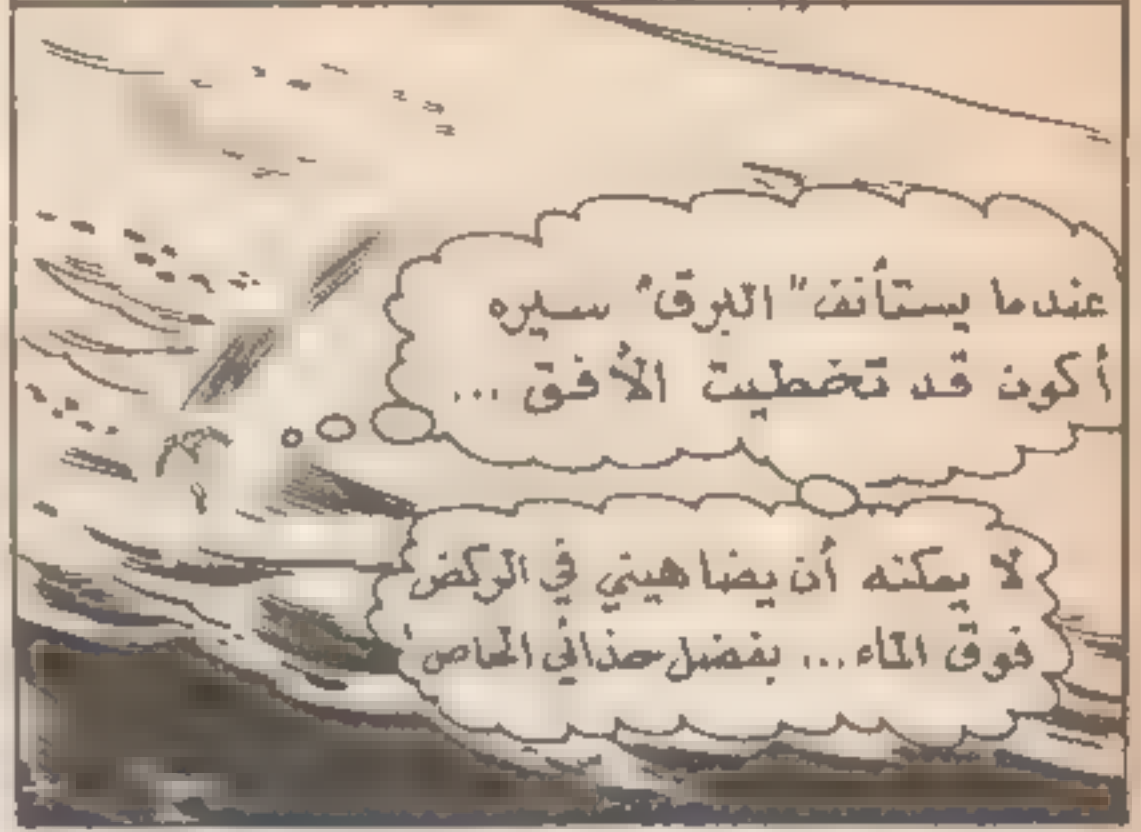 عندما يستأنف "البرق" سيره
أكون قد تخطيت الأفق ...
لا يمكنه أن يضاهيني في الركض
فوق الماء ... بفضل حذائي الخاص